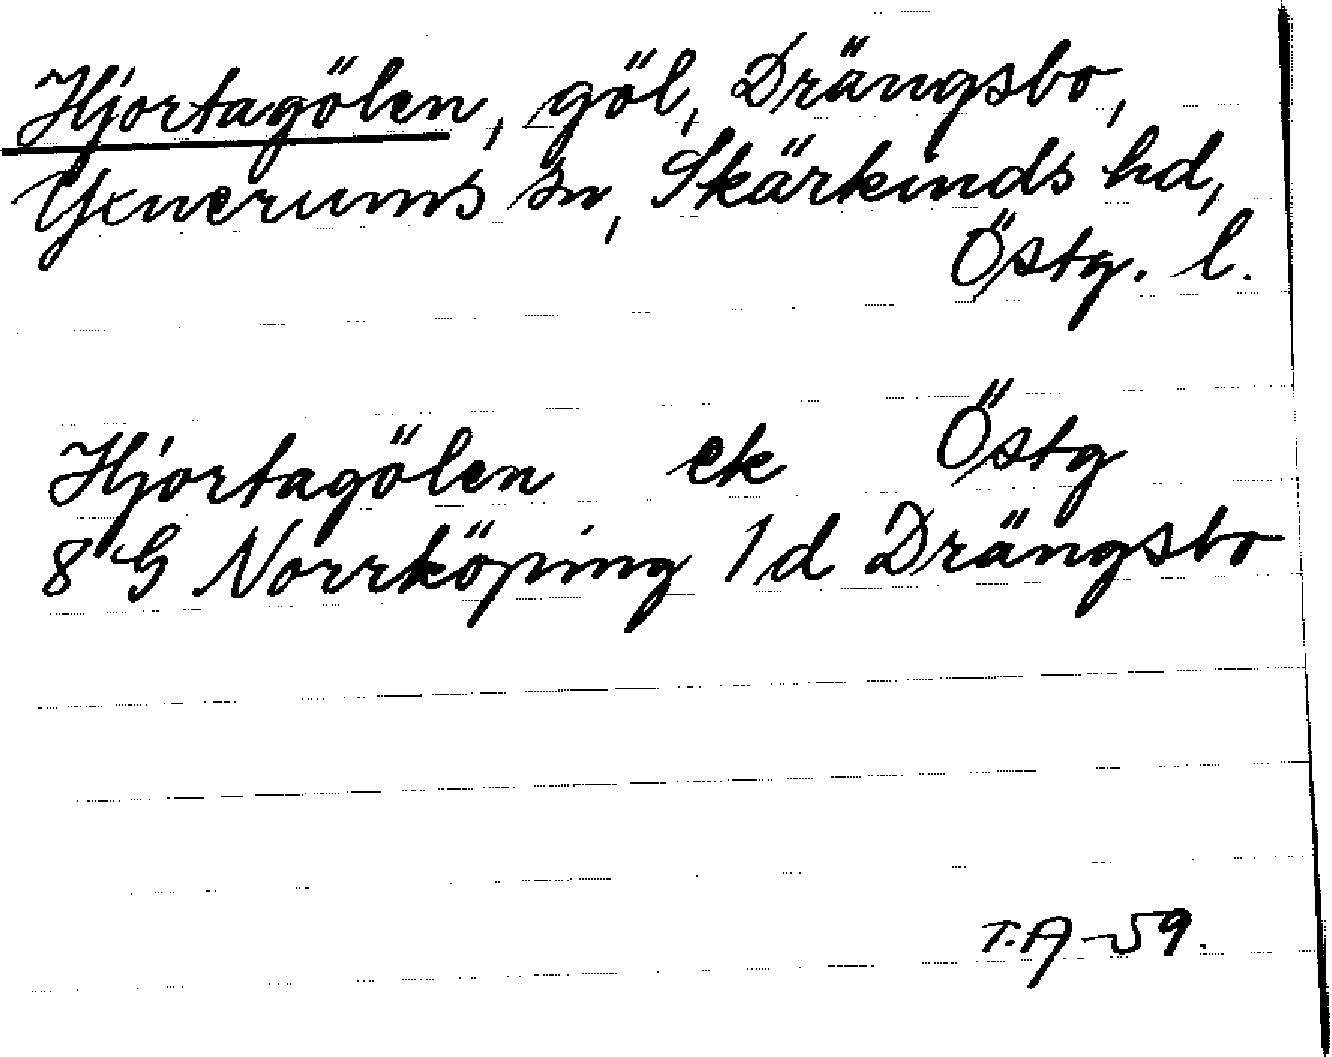 Hjortagölen, göl, Drängsbo,
Yxnerums sn, Skärkinds hd,
Östg. l.
Hjortagölen ek Östg
8 G Norrköping 1 d Drängsbo
T.A-59.